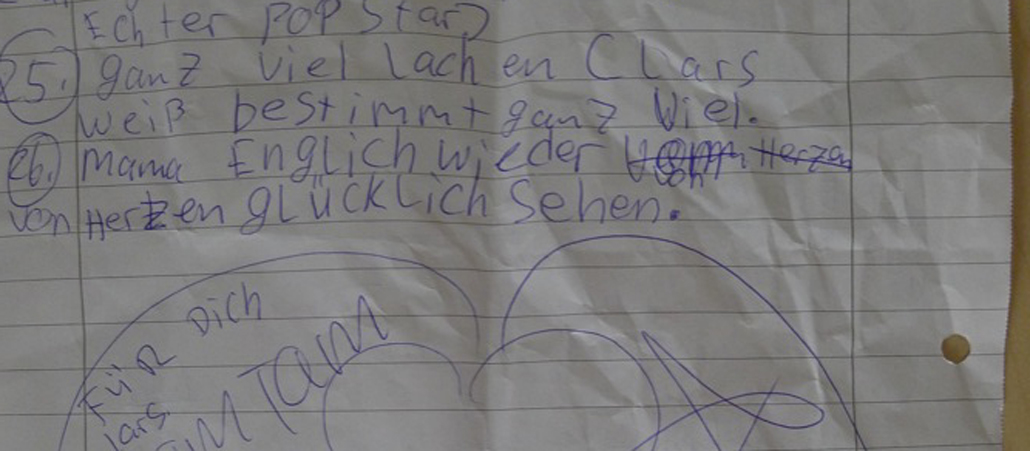 Echter POP Star)
25. ganz viel lachen CLars
weiß bestimmt ganz Viel.
26. Mama Englich wieder
von Herzen gLÜCKLich Sehen.
FüR DiCh
Lars
TAM